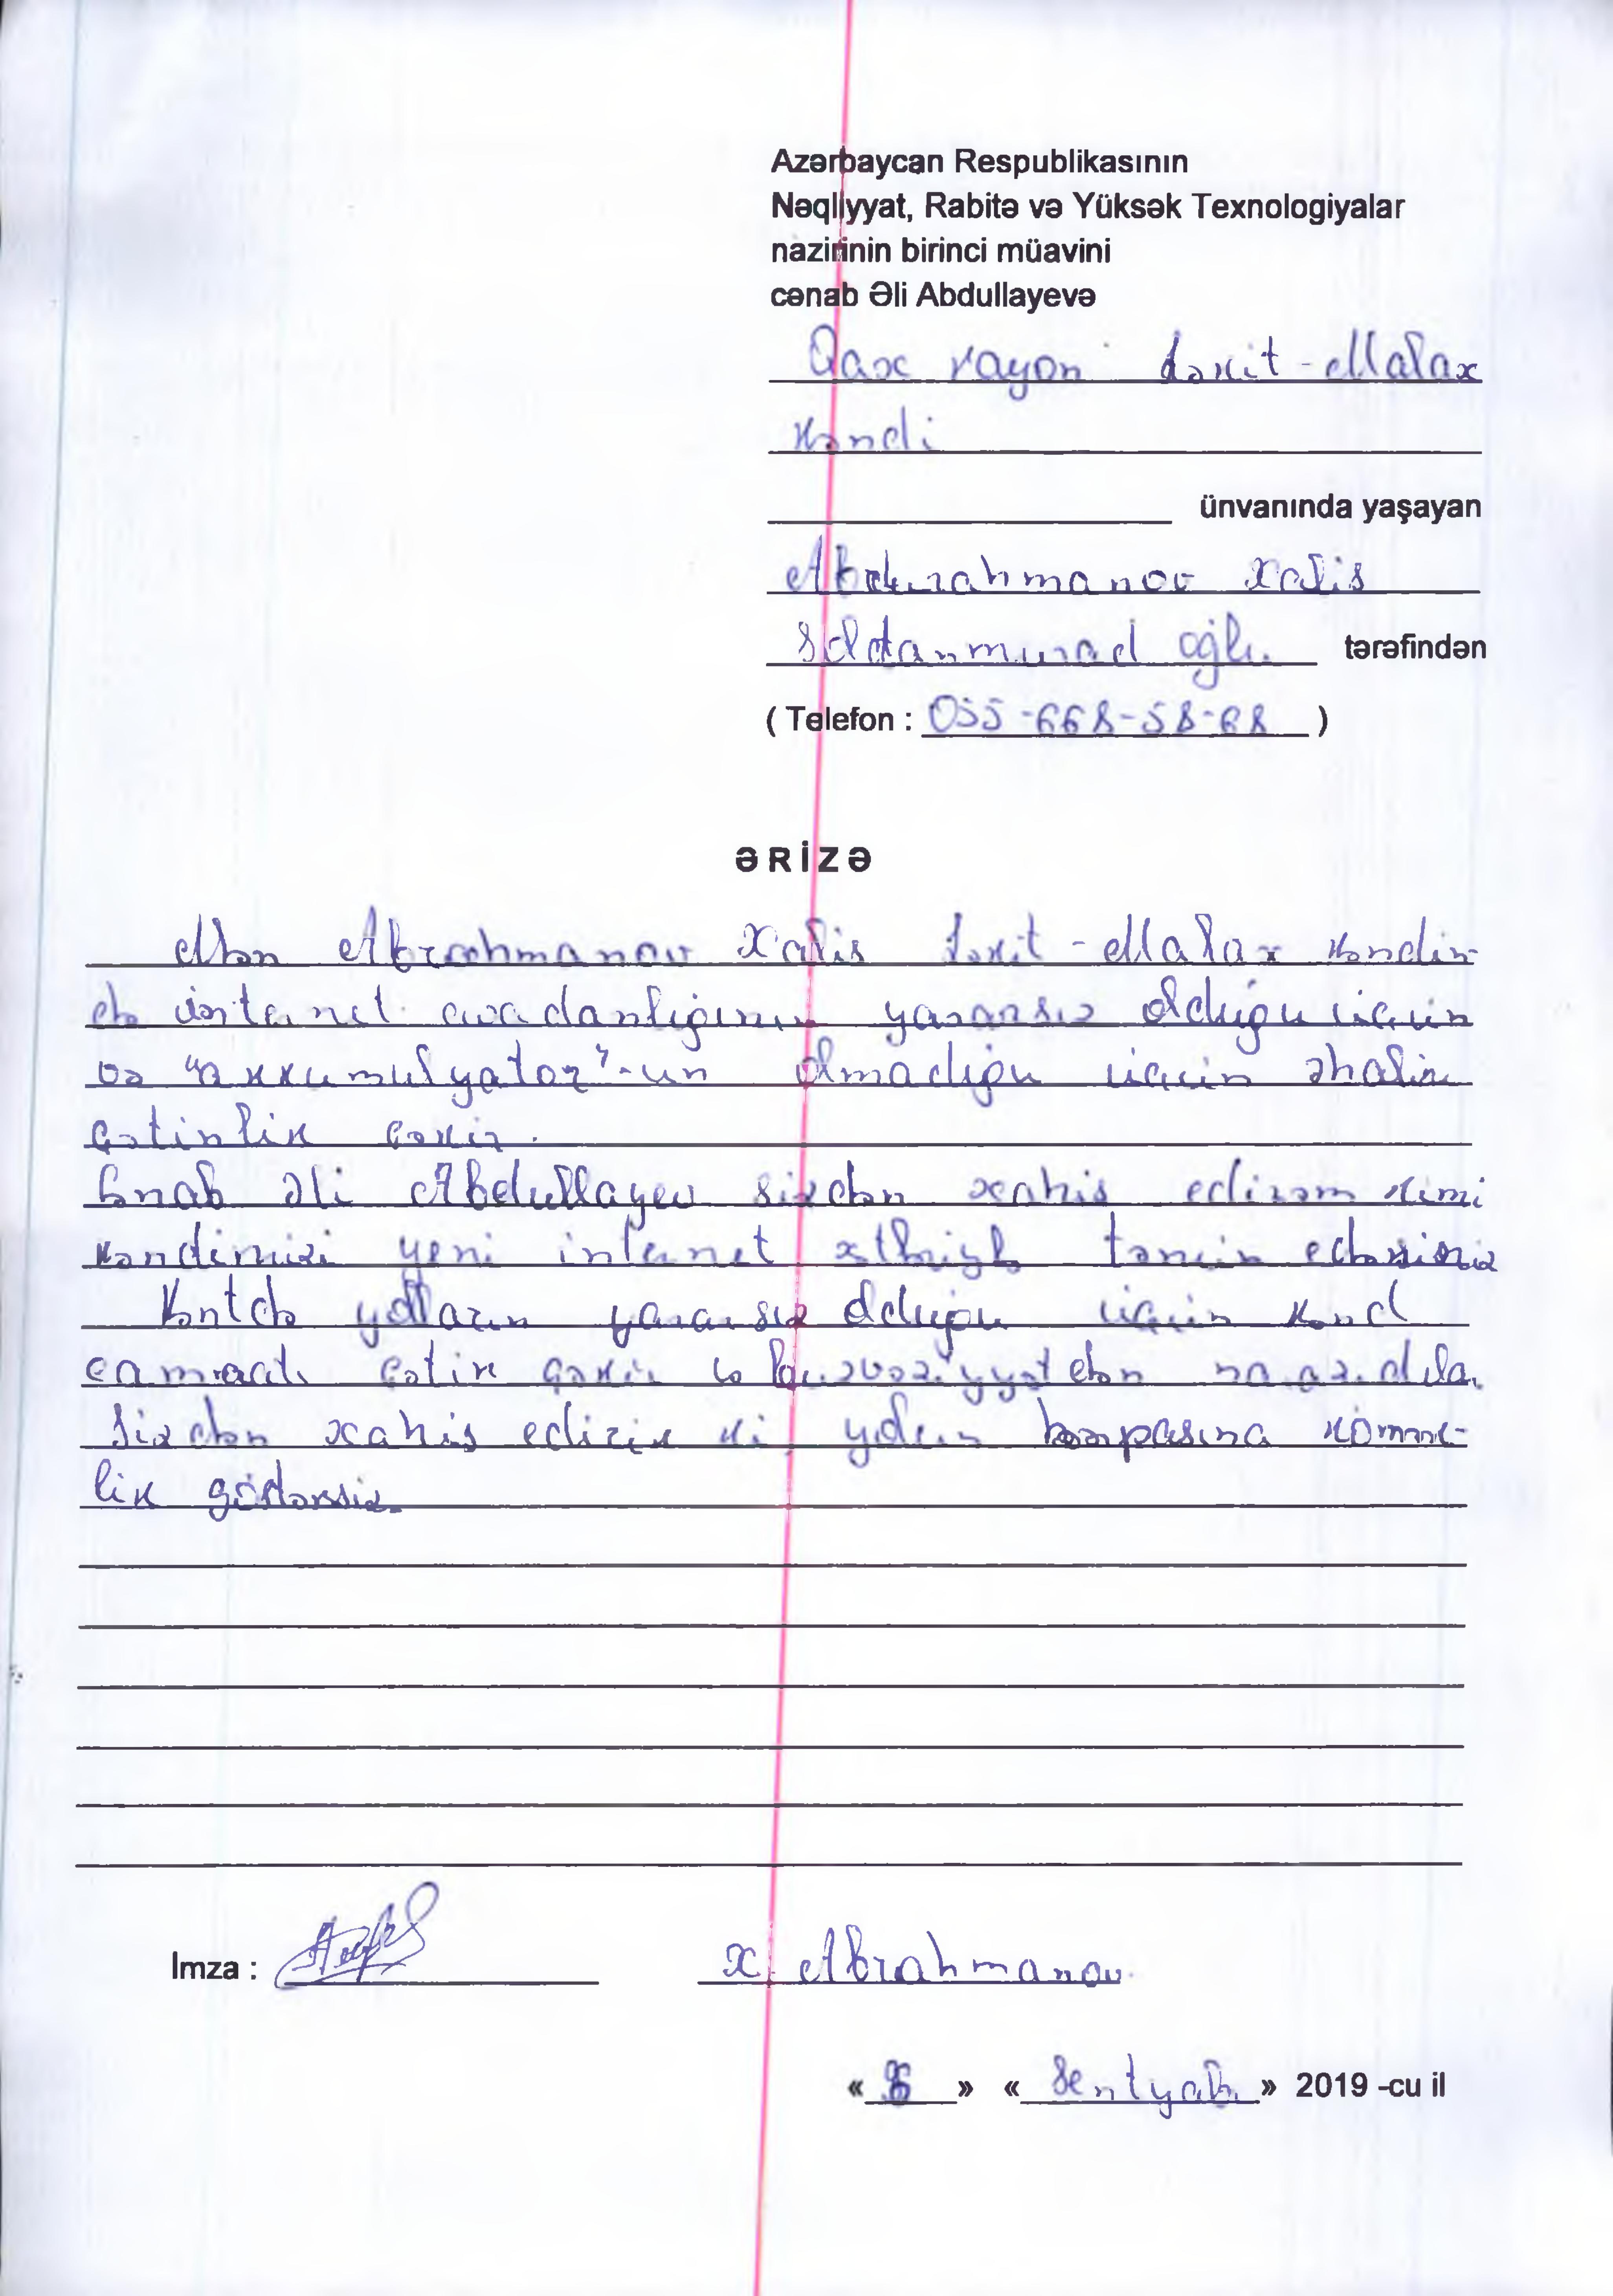 Azərbaycan Respublikasının
Nəqliyyat, Rabitə və Yüksək Texnologiyalar
nazirinin birinci müavini
cənab Əli Abdullayevə
Qax rayon Ləkit-Malax
kəndi
ünvanında yaşayan
Abdurahmanov Xalis
Soltanmurad oğlu tərəfindən
( Telefon : 055-668-58-68 )
ƏRİZƏ
Mən Abrahmanov Xalis Ləkit-Malax kəndin-
də internet avadanlığının yararsız olduğu üçün
və "akkumulyator"-un olmadığı üçün əhalin
çətinlik çəkir.
Cənab Əli Abdullayev sizdən xahiş edirəm kimi
kəndimizi yeni internet xətləriylə təmin edəsiniz
Kəntdə yolların yararsız olduğu üçün kənd
camaatı çətin çəkir və bu vəziyyətdən narazıdıla.
Sizdən xahiş edirik ki yolun
lik göstərəsiz.
Imza :
X. Abrahmanov
« » « Sentyabr » 2019 -cu il